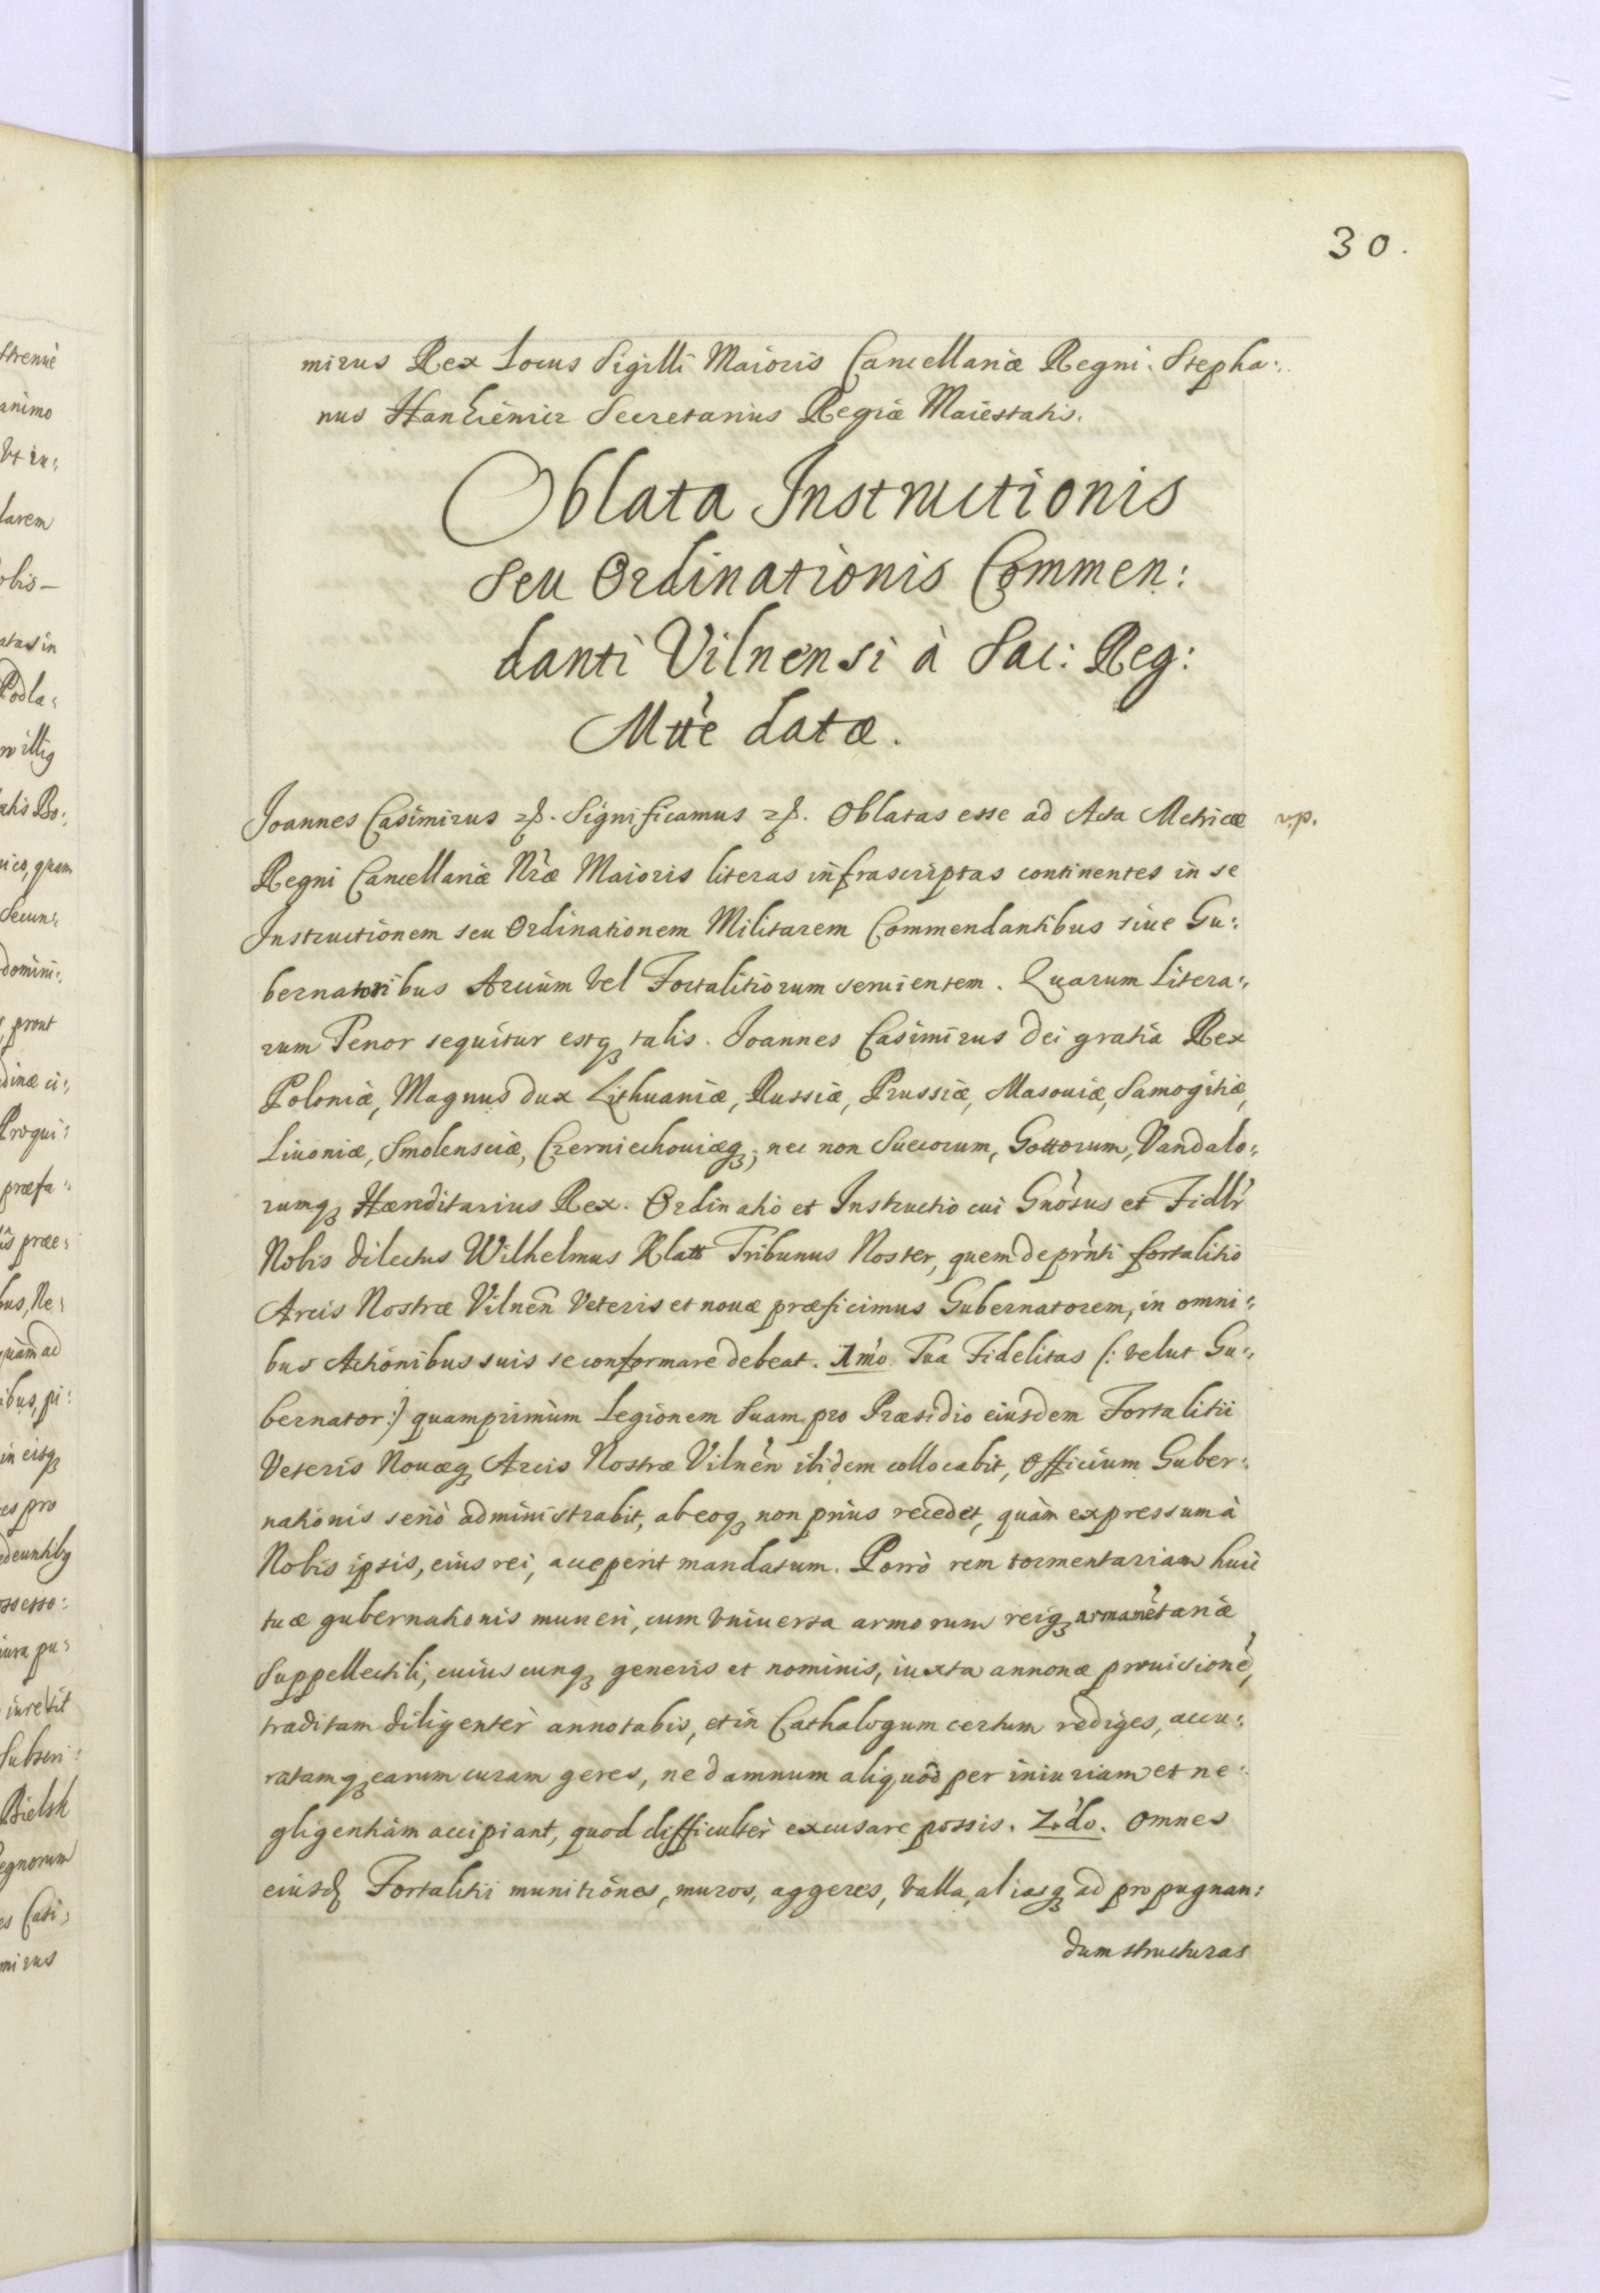 30.
mirus Rex Locus Sigilli Maioris Cancellariæ Regni. Stepha:
nus Hankiewicz Secretarius Regiæ Maiestatis.
Oblata Instructionis
seu Ordinationis Commen:
danti Vilnensi à Sac: Reg:
Mtte datæ.
Joannes Casimirus etc. Significamus etc. Oblatas esse ad Acta Metricæ
Regni Cancellariæ Nræ Maioris literas infrascriptas continentes in se
Instructionem seu Ordinationem Militarem Commendantibus siue Gu:
bernatoribus Arcium vel Fortalitiorum seruientem. Quarum Litera:
rum Tenor sequitur estq talis. Joannes Casimirus Dei gratia Rex
Poloniæ, Magnus Dux Lithuaniæ, Russiæ, Prussiæ, Masouiæ, Samogitiæ,
Liuoniæ, Smolensciæ, Czerniechouiæq; nec non Suecorum, Gottorum, Vandalo:
rumq Hæreditarius Rex. Ordinatio et Instructio cui Gnosus et Fidlr
Nobis dilectus Wilhelmus Klatt Tribunus Noster, quem de prnti fortalitio
Arcis Nostræ Vilnen Veteris et nouæ præficimus Gubernatorem, in omni:
bus Actionibus suis se conformare debeat. 1mo. Tua Fidelitas (: velut Gu:
bernator:) quamprimùm Legionem Suam pro Præsidio eiusdem Fortalitii
Veteris Nouæq Arcis Nostræ Vilnen ibidem collocabit, Officium Guber:
nationis seriò administrabit, ab eoq non priùs recedet, quàm expressum à
Nobis ipsis, eius rei, acceperit mandatum. Porrò rem tormentariam huic
tuæ gubernationis muneri, cum vniuersa armorum reiq armametariæ
Suppellectili, cuiuscunq generis et nominis, iuxta annonæ prouisione,
traditam diligenter annotabis, et in Cathalogum certum rediges, accu:
ratamq earum curam geres, ne damnum aliquod per iniuriam et ne:
gligentiam accipiant, quod difficulter excusare possis. 2do. Omnes
eiusd Fortalitii munitiones, muros, aggeres, valla, aliasq ad propugnan:
dum structuras